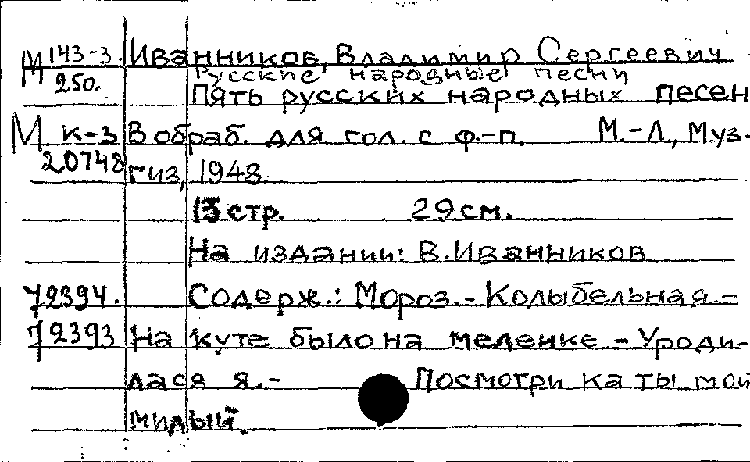 М 143-3 Иванников, Владимир Сергеевич
Русские народные песни
250. Пять русских народных песен
М К-3 В обраб. для гол. с ф.-п. М.-Л., Муз-
20748 гиз, 1948.
13 стр. 29 см.
На издании: В. Иванников
72394. Содерж.: Мороз. - Колыбельная. -
72393 На куте было на меленке - Уроди-
лася я. - Посмотри ка ты мой
милый.